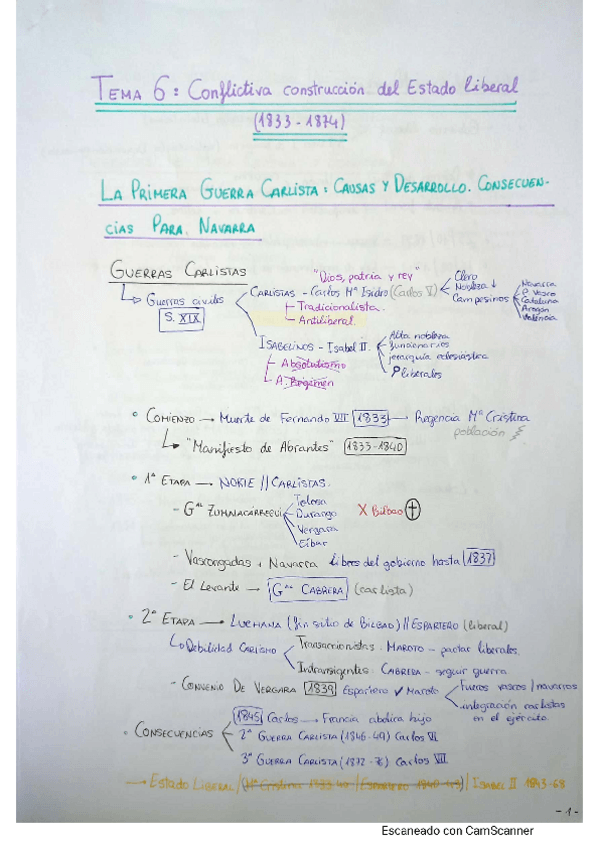 TEMA 6: Conflictiva construcción del Estado liberal
(1833-1874)
LA PRIMERA GUERRA CARLISTA: CAUSAS Y DESARROLLO. CONSECUEN-
CIAS PARA NAVARRA
GUERRAS CARLISTAS
Guerras civiles
S. XIX
"Dios, patria y rey"
CARLISTAS - Carlos Mª Isidro (Carlos V)
Tradicionalista.
Antiliberal.
Clero
Nobleza ↓
Campesinos
Navarra
P. Vasco
Cataluña
Aragón
Valencia
ISABELINOS - Isabel II.
Absolutismo
A. Régimen
Alta nobleza
Funcionarios
jerarquía eclesiástica
P liberales
• COMIENZO → Muerte de Fernando VII 1833 → Regencia Mª Cristina
población
"Manifiesto de Abrantes" 1833-1840
• 1ª ETAPA → NORTE // CARLISTAS.
- Gral ZUMALACÁRREGUI
Tolosa
Durango
Vergara
Eibar
X Bilbao
- Vascongadas + Navarra libres del gobierno hasta 1837
- El Levante → Gral CABRERA (carlista)
• 2ª ETAPA → LUCHANA (fin sitio de Bilbao) // ESPARTERO (liberal)
Debilidad CARLISMO
Transaccionistas. MAROTO - pactar liberales.
Intransigentes. CABRERA - seguir guerra.
- CONVENIO DE VERGARA 1839 Espartero ✓ Maroto
Fueros vascos / navarros
integración carlistas
en el ejército.
• CONSECUENCIAS
1845 Carlos → Francia abdica hijo
2ª GUERRA CARLISTA (1846-49) Carlos VI
3ª GUERRA CARLISTA (1872-76) Carlos VII
→ ESTADO LIBERAL / (Mª Cristina 1833-40 / Espartero 1840-43) / Isabel II 1843-68
- 1 -
Escaneado con CamScanner